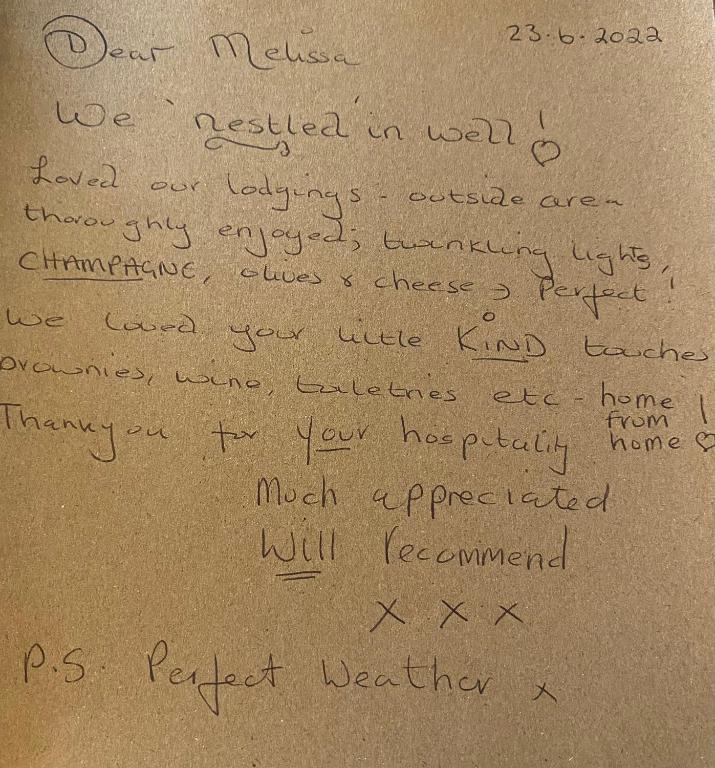 Dear Melissa 23.6.2022
We 'nestled' in well!
Loved our lodgings - outside area
thoroughly enjoyed; twinkling lights,
CHAMPAGNE, olives & cheese → Perfect!
We loved your little KIND touches
brownies, wine, toiletries etc - home from home!
Thankyou for your hospitality
Much appreciated
Will recommend
X X X
P.S. Perfect Weather x